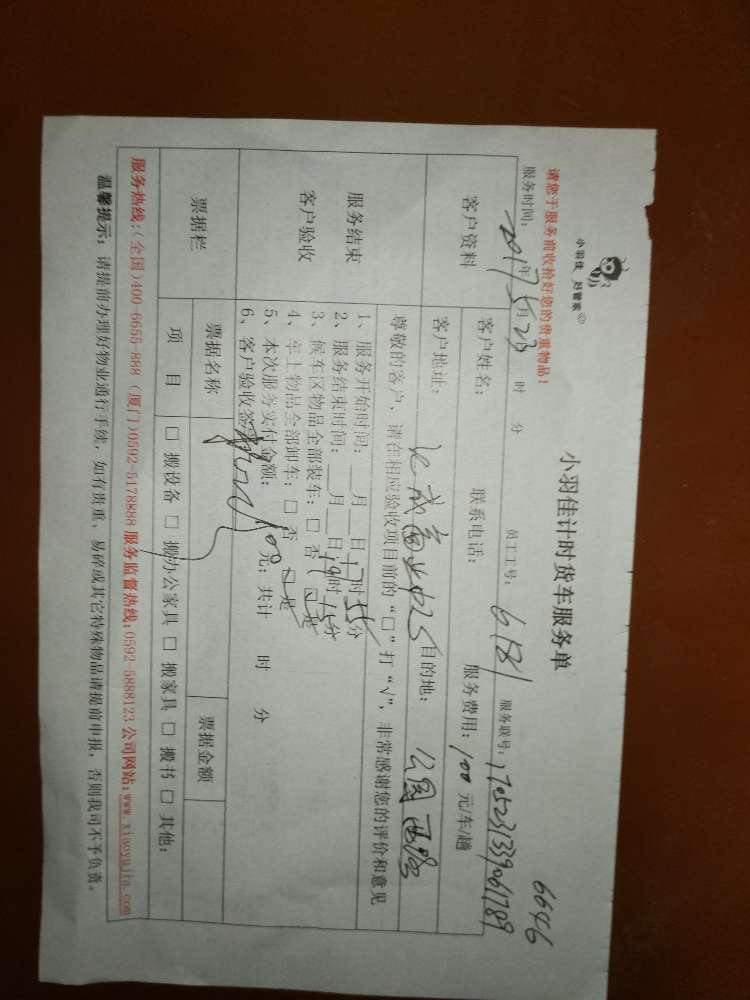 小羽佳 好管家
小羽佳计时货车服务单
6646
请您于服务前收拾好您的贵重物品！
服务时间：2017年5月23 时 分 员工工号：6181 服务联号：1705231339061789
客户资料
客户姓名： 联系电话： 服务费用：100 元/车/趟
客户地址： 商业中心 目的地： 公园西路
服务结束
客户验收
尊敬的客户，请在相应验收项目前的“□”打“√”，非常感谢您的评价和意见
1、服务开始时间：__月__日17时55分
2、服务结束时间：__月__日19时15分
3、候车区物品全部装车：□ 否 □是
4、车上物品全部卸车：□ 否 □是
5、本次服务实付金额： 100 元；共计 时 分
6、客户验收签
票据栏
票据名称 票据金额
项 目 □ 搬设备 □ 搬办公家具 □ 搬家具 □ 搬书 □ 其他：
服务热线：(全国)400-6655-888 (厦门)0592-5178888 服务监督热线：0592-5888123 公司网站：www.xiaoyujia.com
温馨提示：请提前办理好物业通行手续，如有贵重、易碎或其它特殊物品请提前申报，否则我司不予负责。